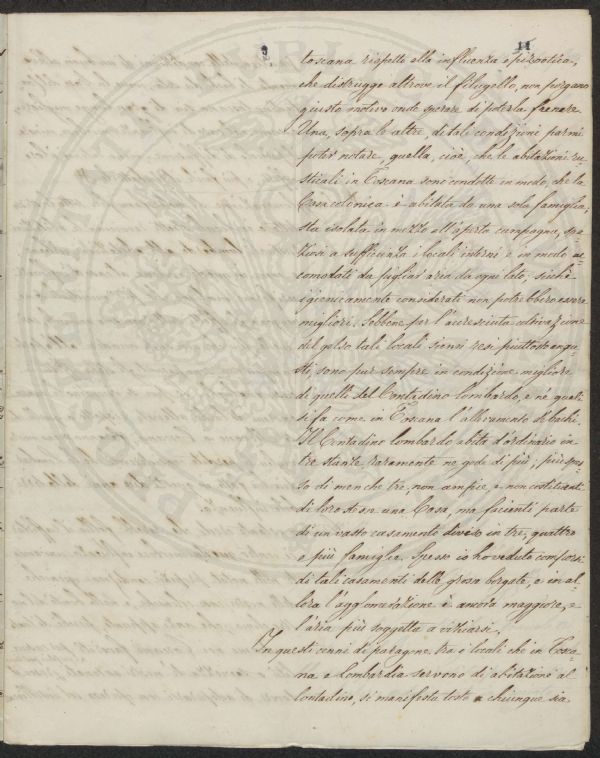 11
toscana rispetto alla influenza epizootica,
che distrugge altrove il filugello, non porgano
giusto motivo onde sperare di poterla frenare.
Una, sopra le altre, di tali condizioni parmi
poter notare, quella, cioè, che le abitazioni ru-
sticali in Toscana sono condotte in modo, che la
Casa colonica è abitata da una sola famiglia,
sta isolata in mezzo all'aperta campagna, spa-
ziosi a sufficienza i locali interni e in modo ac-
comodati da pigliar aria da ogni lato; sicchè
igienicamente considerati non potrebbero essere
migliori. Sebbene per l'accresciuta coltivazione
del gelso tali locali siensi resi piuttosto angu-
sti, sono pur sempre in condizione migliore
di quelli del Contadino lombardo, e ne' quali
si fa come in Toscana l'allevamento de' bachi.
Il Contadino lombardo abita d'ordinario in
tre stanze, raramente ne gode di più; più spes-
so di men che tre, non ampie, e non costituenti
di loro stesse una Casa, ma facienti parte
di un vasto casamento diviso in tre, quattro
e più famiglie. Spesso io ho veduto comporsi
di tali casamenti delle grosse borgate, e in al-
lora l'agglomerazione è ancora maggiore, e
l'aria più soggetta a viziarsi.
In questi cenni di paragone tra i locali che in Tosca-
na e Lombardia servono di abitazione al
Contadino, si manifesta tosto a chiunque sia